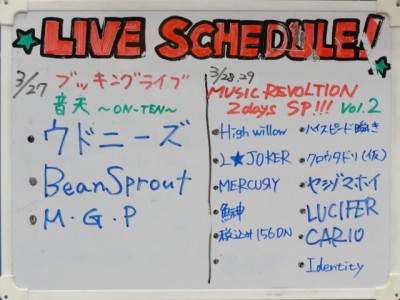 LIVE SCHEDULE!
3/27 ブッキングライブ
音天 ～ON-TEN～
・ウドニーズ
・BeanSprout
・M.G.P
3/28.29
MUSIC REVOLTION
2days SP!!! Vol.2
・High willow
・L★JOKER
・MERCURY
・鯨神
・税込み156DN
・ハイスピード瞬き
・クロウタドリ(仮)
・ヤシダマホイ
・LUCIFER
・CARIO
・Identity